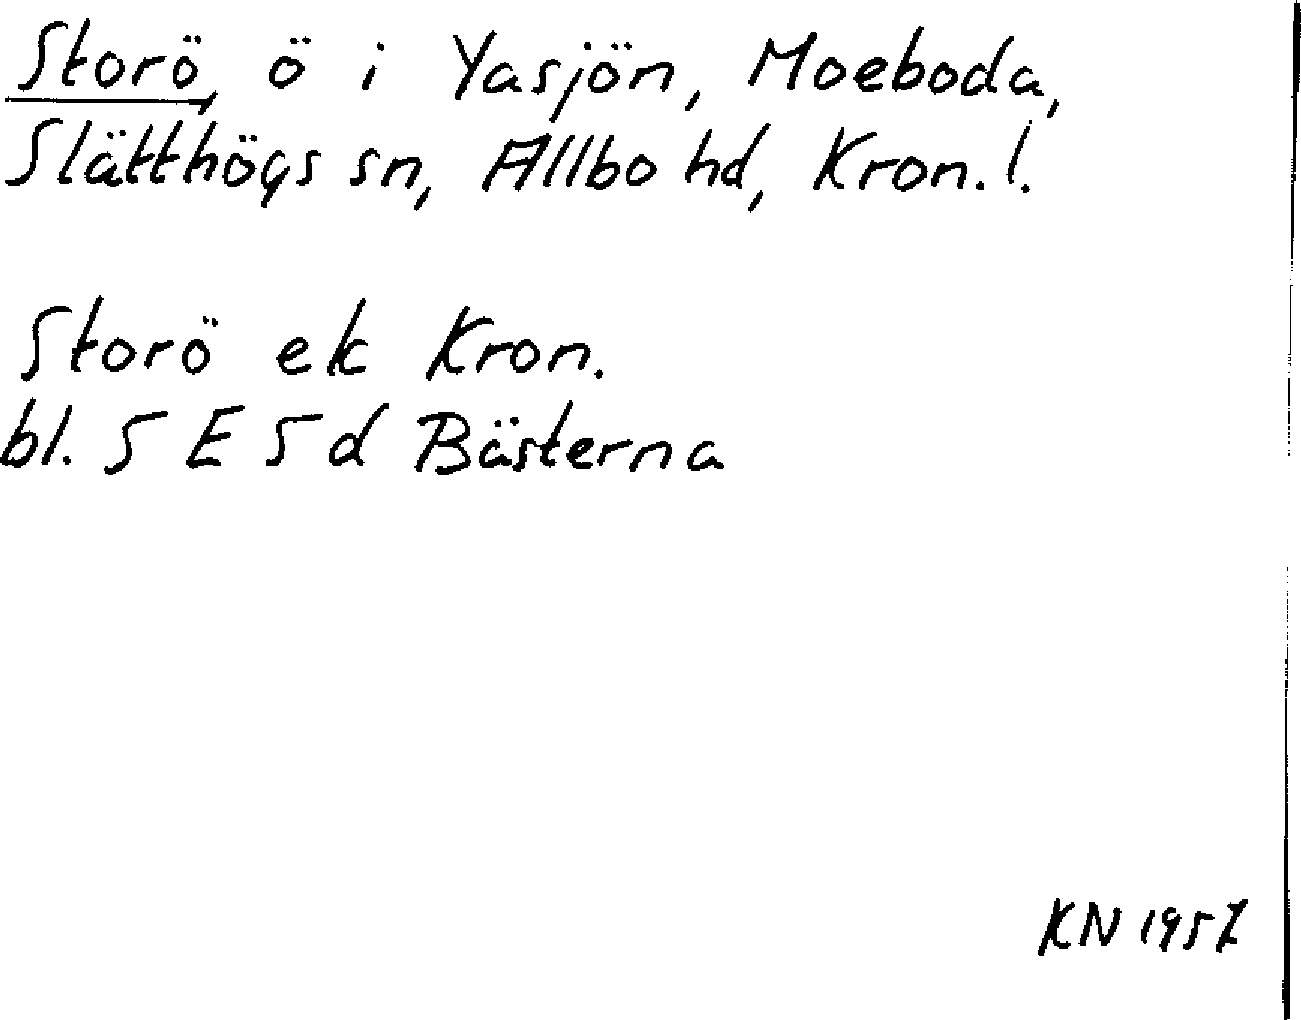 Storö, ö i Yasjön, Moeboda,
Slätthögs sn, Allbo hd, Kron. l.
Storö ek Kron.
bl. 5 E 5 d Bästerna
KN 1957